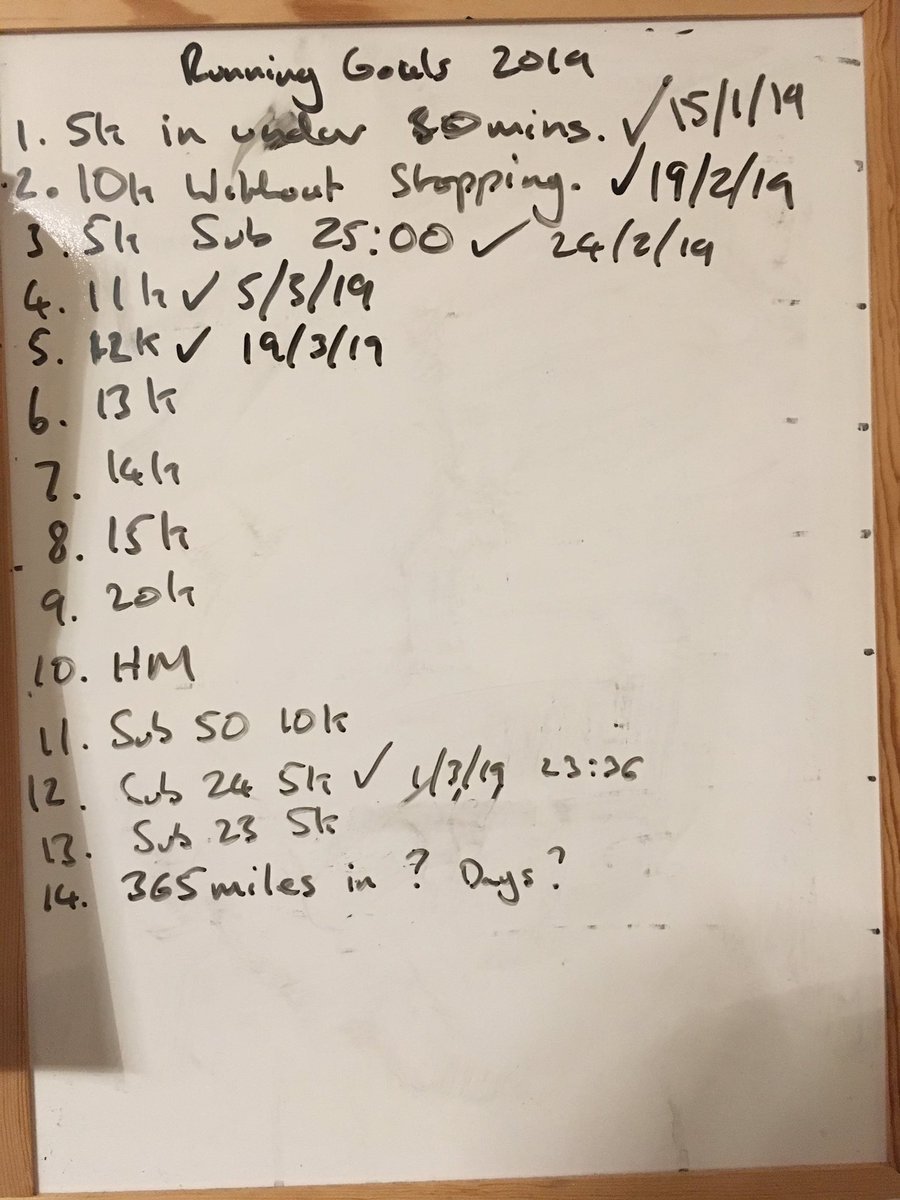 Running Goals 2019
1. 5k in under 30mins. ✓ 15/1/19
2. 10k Without Stopping. ✓ 19/2/19
3. 5k Sub 25:00 ✓ 24/2/19
4. 11k ✓ 5/3/19
5. 12k ✓ 19/3/19
6. 13k
7. 14k
8. 15k
9. 20k
10. HM
11. Sub 50 10k
12. Sub 24 5k ✓ 1/3/19 23:36
13. Sub 23 5k
14. 365miles in ? Days?